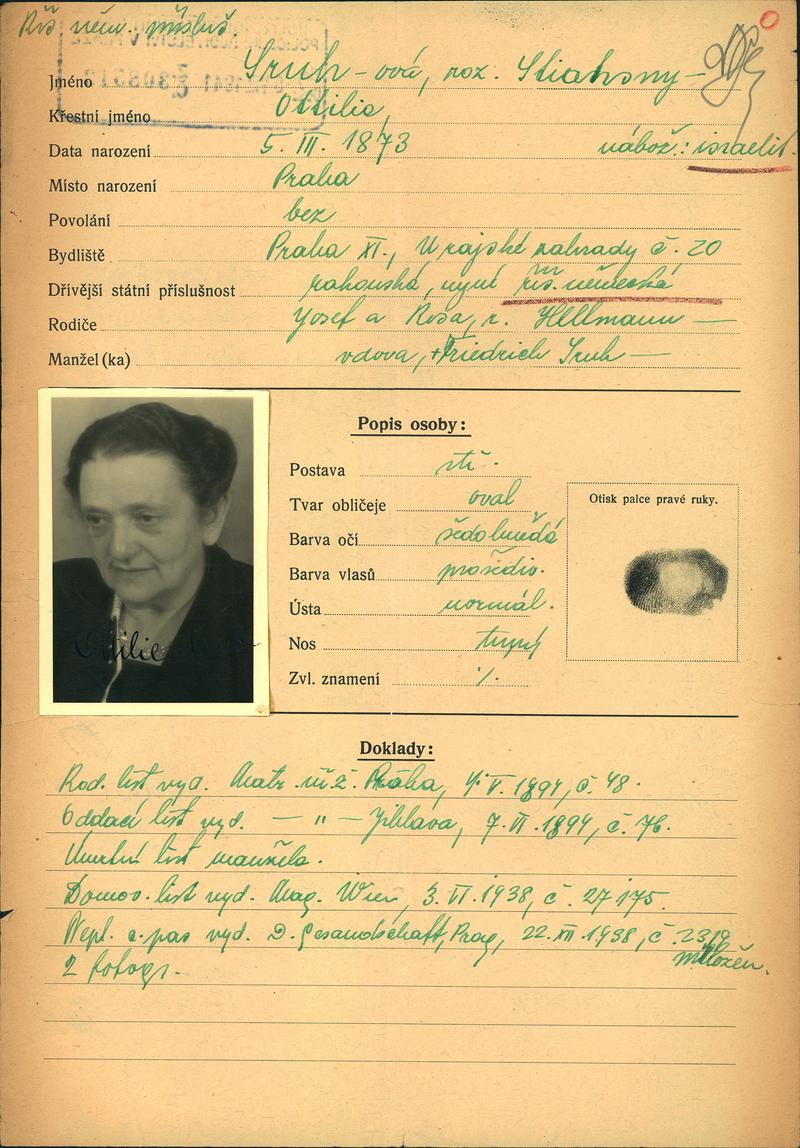 Říš. něm. přísluš.
Jméno Sruh-ová, roz. Stiahsny-
Křestní jméno Ottilie,
Data narození 5. III. 1873 nábož.: israelit.
Místo narození Praha
Povolání bez
Bydliště Praha XI., U rajské zahrady č. 20
Dřívější státní příslušnost rakouská, nyní říš. německá
Rodiče Josef a Rosa, r. Hellmann —
Manžel (ka) vdova, + Friedrich Sruh —
Popis osoby:
Postava stř.
Tvar obličeje oval
Otisk palce pravé ruky.
Barva očí šedohnědá
Barva vlasů prošediv.
Ústa normál.
Nos tupý
Zvl. znamení ·/·
Ottilie
Doklady:
Rod. list vyd. Matr. ú. ž. Praha, V. 1894, č. 48.
Oddací list vyd. — " — Jihlava, 7. VI. 1894, č. 76.
Úmrtní list manžela.
Domov. list vyd. Mag. Wien, 3. VI. 1938, č. 27175.
Nepl. c. pas vyd. D. Gesandschaft, Prag, 22. XII. 1938, č. 2319
2 fotogr.